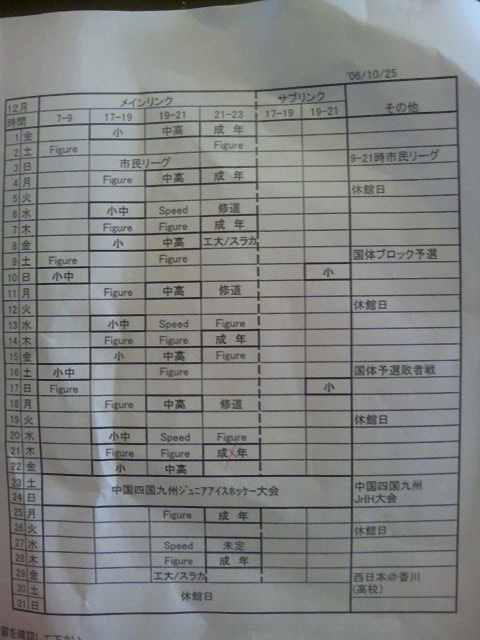 '06/10/25
12月 メインリンク サブリンク その他
時間 7-9 17-19 19-21 21-23 17-19 19-21
1 金 小 中高 成年
2 土 Figure Figure
3 日 市民リーグ 9-21時市民リーグ
4 月 Figure 中高 成年
5 火 休館日
6 水 小中 Speed 修道
7 木 Figure Figure 成年
8 金 小 中高 工大/スラカ
9 土 Figure Figure 国体ブロック予選
10 日 小中 小
11 月 Figure 中高 修道
12 火 休館日
13 水 小中 Speed Figure
14 木 Figure Figure 成年
15 金 小 中高 Figure
16 土 小中 Figure 国体予選敗者戦
17 日 Figure 小
18 月 Figure 中高 修道
19 火 休館日
20 水 小中 Speed Figure
21 木 Figure Figure 成年
22 金 小 中高
23 土 中国四国九州ジュニアアイスホッケー大会 中国四国九州
24 日 JrIH大会
25 月 Figure 成年
26 火 休館日
27 水 Speed 未定
28 木 Figure 成年
29 金 工大/スラカ 西日本@香川
30 土 休館日 (高校)
31 日
習を確認して下さい